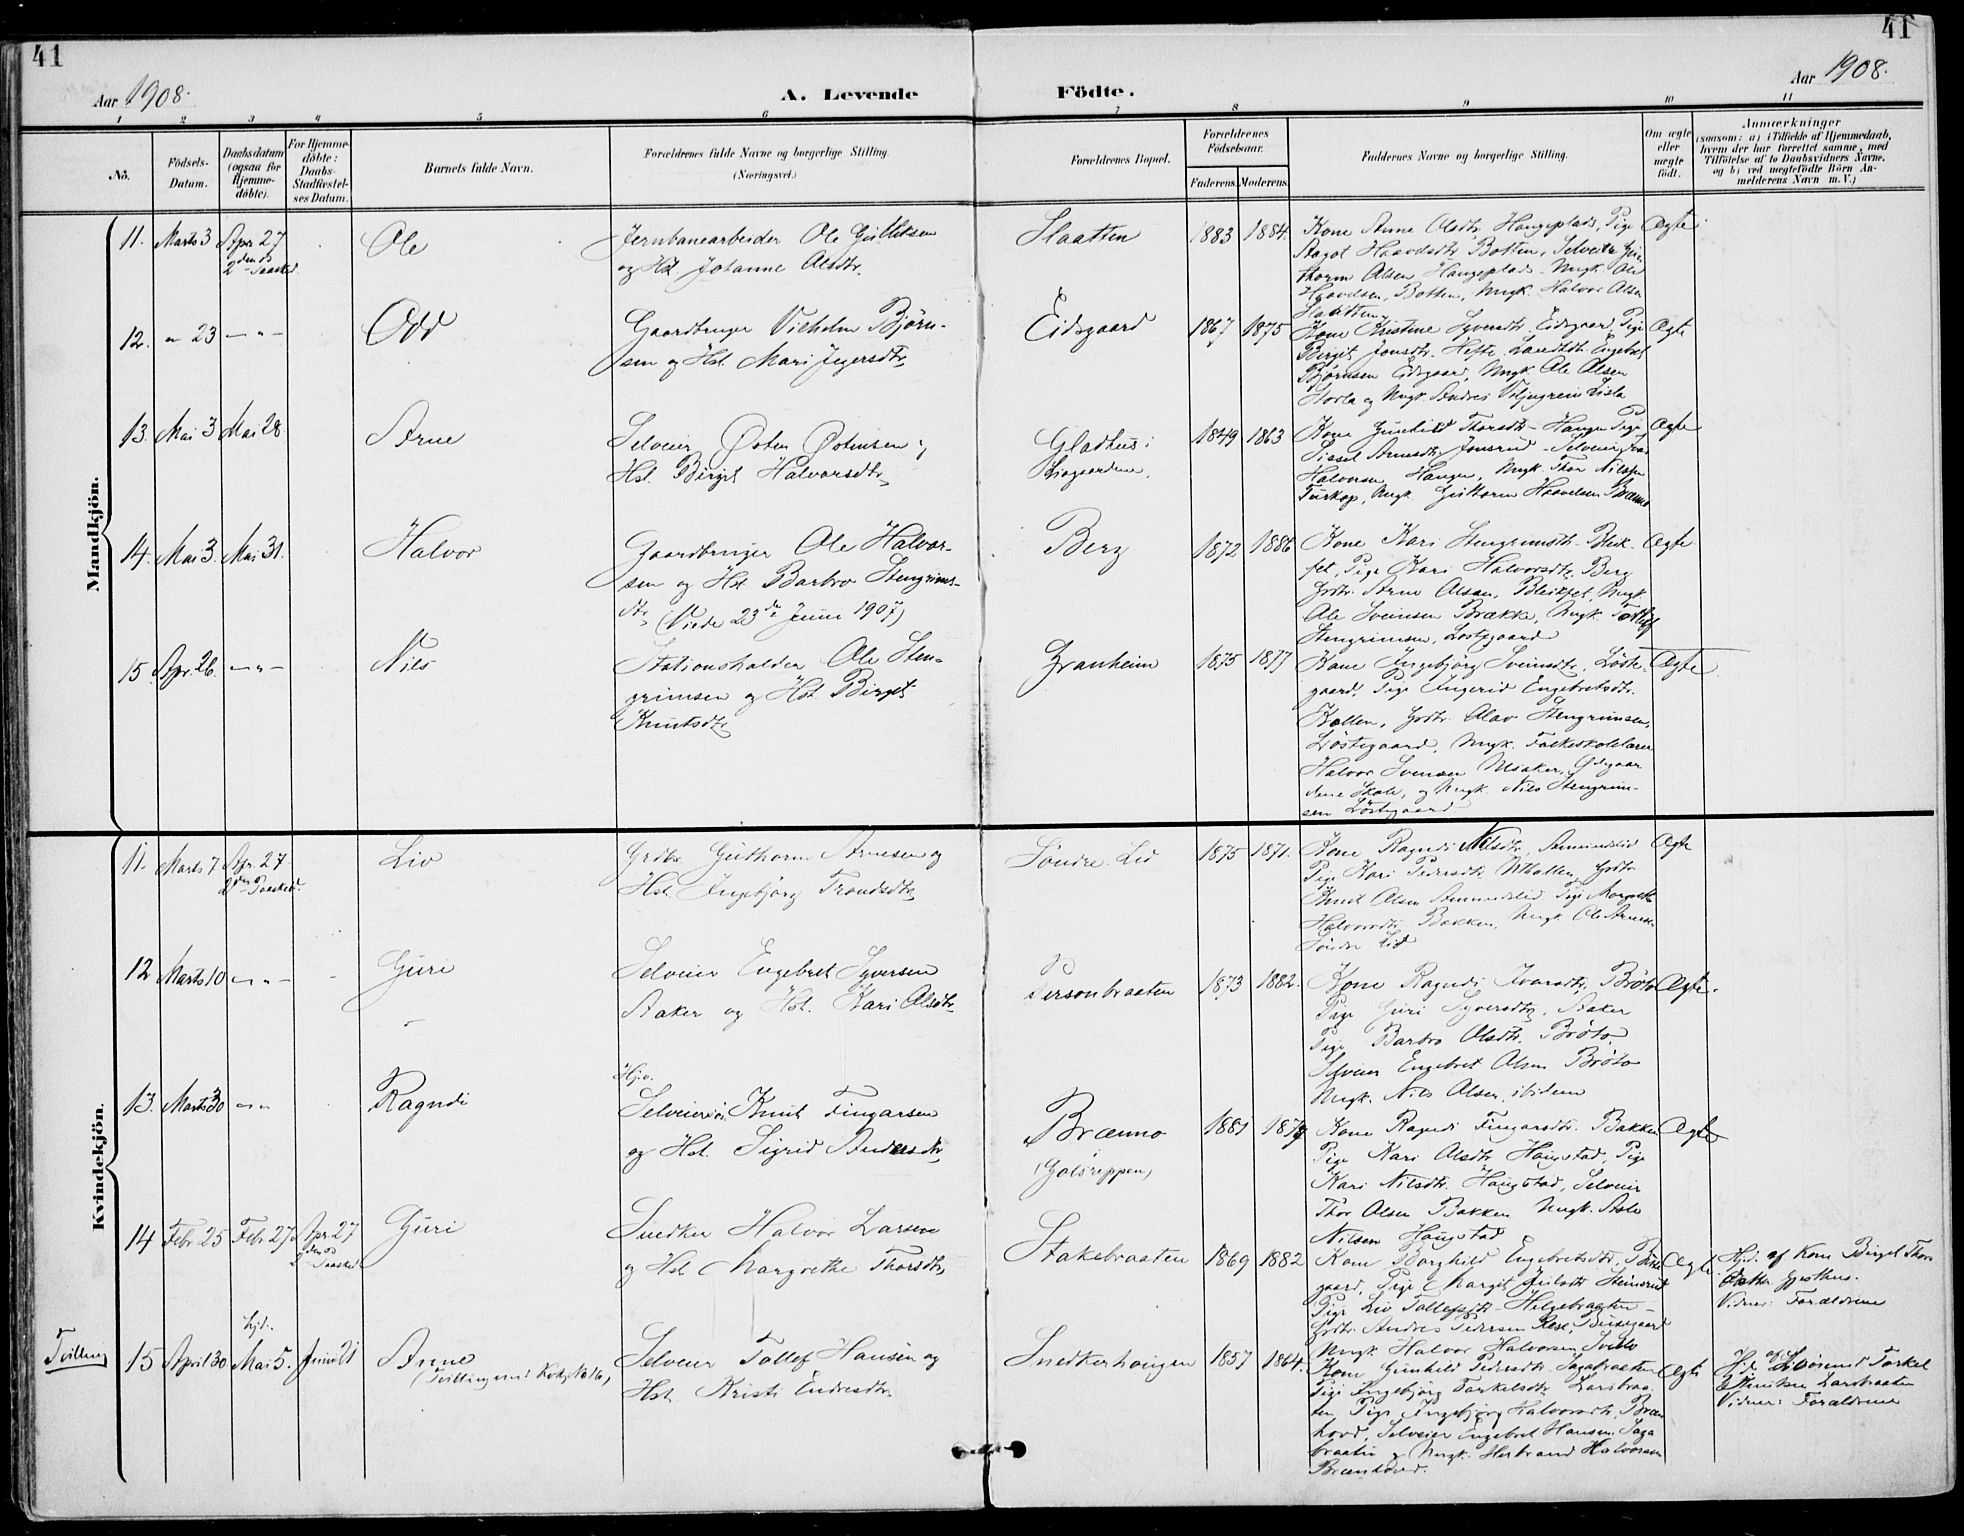 41
41
Aar 1908.
A. Levende
Födte.
Aar 1908.
1 2 3 4 5 6 7 8 9 10 11
No.
Födsels-Datum.
Daabsdatum (ogsaa for Hjemmedöbte).
For Hjemmedöbte: Daabs-Stadfæstelses Datum.
Barnets fulde Navn.
Forældrenes fulde Navne og borgerlige Stilling. (Næringsvei.)
Forældrenes Bopæl.
Forældrenes Födselsaar.
Faderens. Moderens.
Faddernes Navne og borgerlige Stilling.
Om ægte eller uægte födt.
Anmærkninger
(saasom: a) i Tilfælde af Hjemmedaab, hvem der har forrettet samme, med Tilföielse af to Daabsvidners Navne, og b) ved uægtefödte Börn Anmelderens Navn m. V.)
Mandkjön.
11. Marts 3 Apr. 27 2den Paasked. Ole
Jernbanearbeider Ole Gulliksen
og Hst. Johanne Olsdtr.
Slaatten 1883 1884.
Kone Anne Olsdtr. Haugeplads, Pige
Aagot Haavdsdtr. Botten, Selveier
thorm Olsen Haugeplads - Ungk. Ole
Haavelsen, Botten, Ungk. Halvor Olsen
Slaatten
Ægte
12. " 23 — " — Odd
Gaardbruger Vilhelm Bjørn-
sen og Hst. Mari
Eidsgaard 1867 1875
Kone Kristine Syversdtr. Eidsgaard, Pige
Birgit Jonsdtr. Hefte, Engebret
Bjørnsen Eidsgaard, Ungk. Ole Olsen
og Ungk. Andres
Ægte
13. Mai 3 Mai 28 Arne
Selveier Østen Østensen og
Hst. Birgit Halvorsdtr.
Gladhus i
1849 1863
Kone Gunhild Thorsdtr. Haugen Pige
Sissel Arnesdtr. Jonsrud - Selveier
Halvorsen Haugen, Ungk. Thor Nilsen
Ungk. Guttorm Haavelsen Brænno
Ægte
14. Mai 3. Mai 31. Halvor
Gaardbruger Ole Halvor-
sen og Hst. Barbro Stengrims-
dtr. (Viede 23de Juni 1907)
Berg 1872 1886
Kone Kari Stengrimsdtr.
Pige Kari Halvorsdtr. Berg
Grdbr. Arne Olsen, Ungk.
Ole Sveinsen Brække, Ungk.
Stengrimsen, Løstegaard
Ægte
15. Apr. 26. — " — Nils
Stationsholder Ole Sten-
grimsen og Hst. Birgit
Knutsdtr.
Granheim 1875 1877
Kone Ingebjørg Sveinsdtr. Løste-
gaard, Pige Ingerid Engebretsdtr.
Kollen, Grdbr. Olav Stengrimsen,
Løstegaard, Ungk. Folkeskolelærer
Halvor Svensen
Skole, og Ungk. Nils Stengrim-
sen Løstegaard
Ægte.
Kvindekjön.
11. Marts 7 Apr. 27 2den Paasked. Liv
Grdbr. Gutthorm Arnesen og
Hst. Ingebjørg Trondsdtr.
Søndre Lid 1875 1871.
Kone Ragndi Nilsdtr. Aamundslid
Pige Kari Pedersdtr. Grdbr.
Knut Olsen Aamundslid Pige
Halvorsdtr. Bakken, Ungk. Ole Arnesen
Søndre Lid
Ægte
12 Marts 10 — " — Guri
Selveier Engebret Syversen
Aaker og Hst. Kari Olsdtr.
Personbraaten 1873 1882.
Kone Ragndi Ivarsdtr. Brøto
Pige Guri Syversdtr. Aaker
Pige Barbro Olsdtr. Brøto
Selveier Engebret Olsen Brøto
Ungk. Nils Olsen, ibidem
Ægte.
13. Marts 30 — " — Ragndi
Selveier Knut Fingarsen
og Hst. Sigrid Andersdtr.
Brænno
(Golsreppen)
1881
Kone Ragndi Fingarsdtr. Bakken
Pige Kari Olsdtr. Haugstad, Pige
Kari Nilsdtr. Haugstad, Selveier
Thor Olsen Bakken Ungk. Asle
Nilsen Haugstad
Ægte
14 Febr 25 Febr 27 Apr. 27 2den Paasked. Guri
Snedker Halvor Larsen
og Hst. Margrethe Thorsdtr.
Stakebraaten 1869 1882
Kone Borghild Engebretsdtr.
gaard, Pige Margit
Pige Liv Tollefsdtr. Helgebraaten -
Grdbr. Andres Pedersen
Ungk. Halvor Halvorsen
Ægte.
Hjd. af Kone Birgit Thors-
datter Gjesthus.
Vidner: Forældrene
Tvilling 15 April 30 hjd. Mai 5. Juni 21 Anne
(Tvilling med Kvk. No 16)
Selveier Tollef Hansen og
Hst. Kristi Endresdtr.
Snedkerhaugen 1857 1864.
Kone Gunhild Pedersdtr. Sagabraaten
Pige Ingebjørg Torkelsdtr. Larsbraa-
ten Pige Ingebjørg Halvorsdtr. Bræn-
hovd, Selveier Engebret Hansen Saga-
braaten og Ungk. Herbrand Halvorsen
Brænhovd.
Ægte
Larsbraaten
Vidner: Forældrene